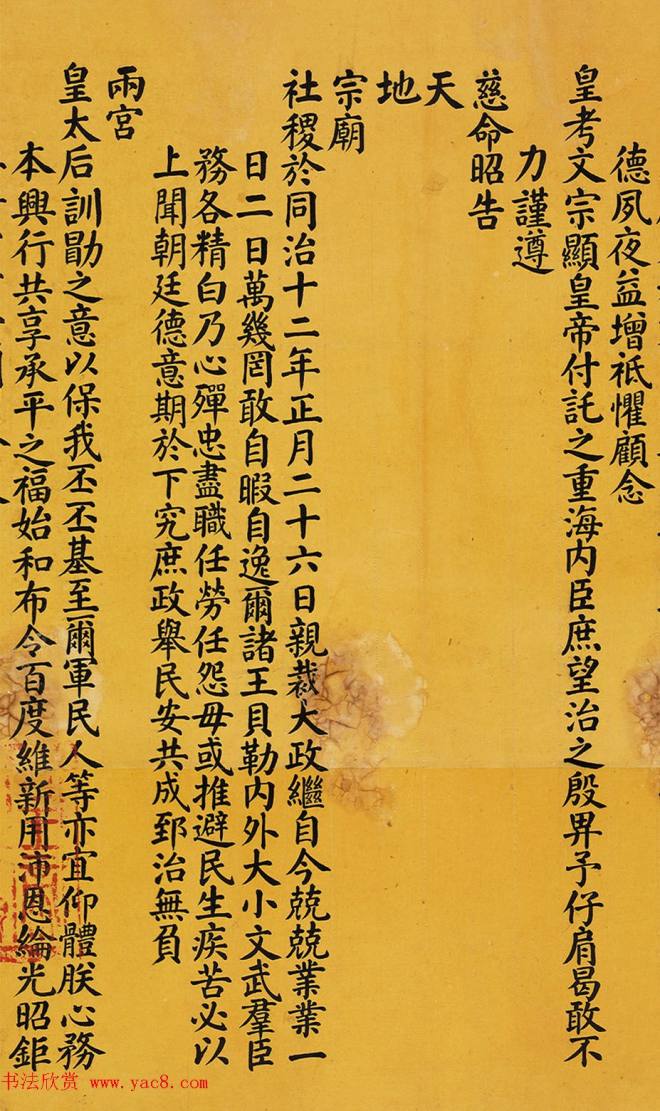 德夙夜益增祗懼顧念
皇考文宗顯皇帝付託之重海內臣庶望治之殷畀予仔肩曷敢不
力謹遵
慈命昭告
天
地
宗廟
社稷於同治十二年正月二十六日親裁大政繼自今兢兢業業一
日二日萬幾罔敢自暇自逸爾諸王貝勒內外大小文武羣臣
務各精白乃心殫忠盡職任勞任怨毋或推避民生疾苦必以
上聞朝廷德意期於下究庶政舉民安共成郅治無負
兩宮
皇太后訓勖之意以保我丕丕基至爾軍民人等亦宜仰體朕心務
本興行共享承平之福始和布令百度維新用沛恩綸光昭鉅
书法欣赏 www.yac8.com